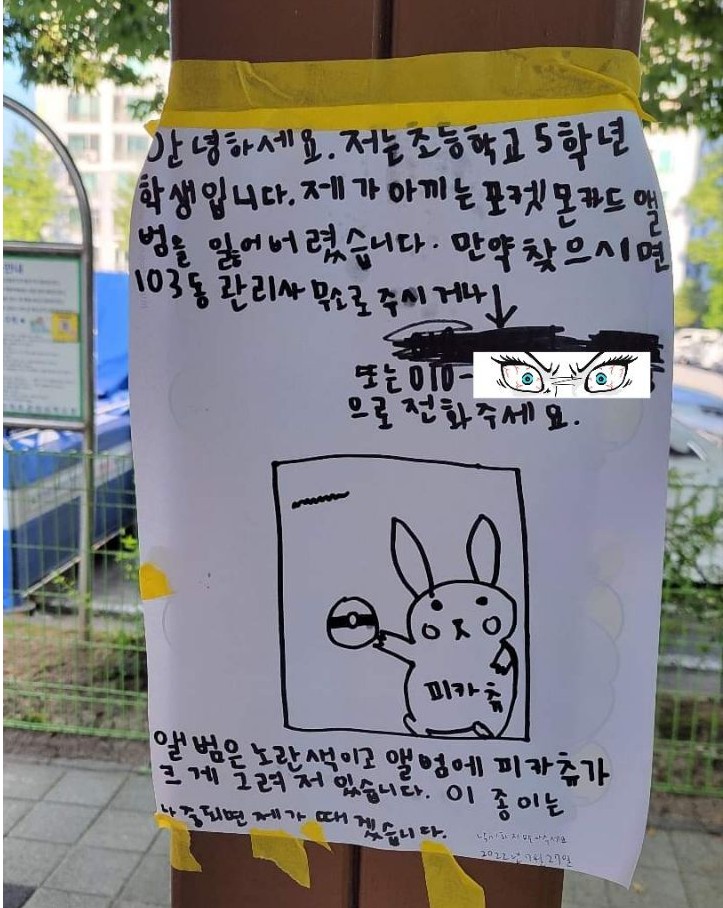 안내
안녕하세요. 저는 초등학교 5학년
학생입니다. 제가 아끼는 포켓몬카드 앨
범을 잃어버렸습니다. 만약 찾으시면
103동 관리사무소로 주시거나
또는 010-
으로 전화주세요.
피카츄
앨범은 노란색이고 앨범에 피카츄가
크게 그려져 있습니다. 이 종이는
나중되면 제가 떼겠습니다.
2022년 7월 27일